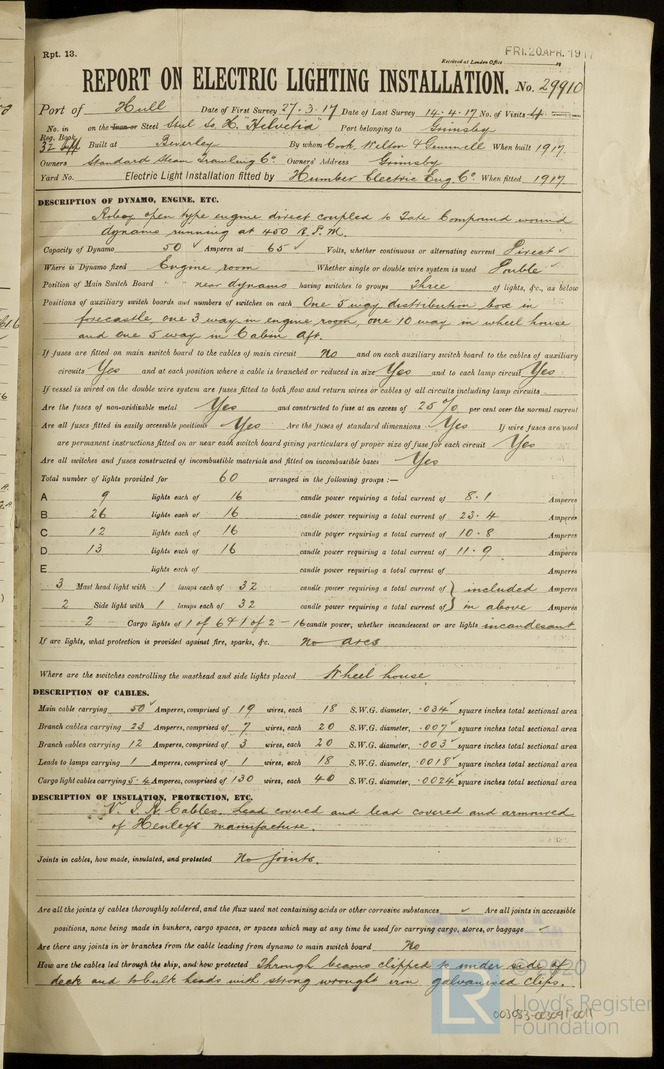 Rpt. 13.
FRI. 20 APR. 19
Received at London Office
REPORT ON ELECTRIC LIGHTING INSTALLATION. No. 29910
Port of Hull Date of First Survey 27.3.17 Date of Last Survey 14.4.17 No. of Visits 4
No. in Reg. Book on the Iron or Steel Steel Sc K. "Helvetia" Port belonging to Grimsby
32 Supp Built at Beverley By whom Cook, Welton & Gemmell When built 1917.
Owners Standard Steam Trawling Co. Owners' Address Grimsby
Yard No. Electric Light Installation fitted by Humber Electric Eng. Co. When fitted 1917.
DESCRIPTION OF DYNAMO, ENGINE, ETC.
Robey open type engine direct coupled to Compound wound
dynamo running at 450 R.P.M.
Capacity of Dynamo 50 ✓ Amperes at 65 ✓ Volts, whether continuous or alternating current Direct ✓
Where is Dynamo fixed Engine room Whether single or double wire system is used Double ✓
Position of Main Switch Board " " near dynamo having switches to groups Three of lights, &c., as below
Positions of auxiliary switch boards and numbers of switches on each One 5 way distribution box in
forecastle, one 3 way in engine room, one 10 way in wheel house
and one 5 way in Cabin aft.
If fuses are fitted on main switch board to the cables of main circuit No and on each auxiliary switch board to the cables of auxiliary
circuits Yes and at each position where a cable is branched or reduced in size Yes and to each lamp circuit Yes
If vessel is wired on the double wire system are fuses fitted to both flow and return wires or cables of all circuits including lamp circuits
Are the fuses of non-oxidizable metal Yes and constructed to fuse at an excess of 25% per cent over the normal current
Are all fuses fitted in easily accessible positions Yes Are the fuses of standard dimensions Yes If wire fuses are used
are permanent instructions fitted on or near each switch board giving particulars of proper size of fuse for each circuit Yes
Are all switches and fuses constructed of incombustible materials and fitted on incombustible bases Yes
Total number of lights provided for 60 arranged in the following groups :—
A 9 lights each of 16 candle power requiring a total current of 8.1 Amperes
B 26 lights each of 16 candle power requiring a total current of 23.4 Amperes
C 12 lights each of 16 candle power requiring a total current of 10.8 Amperes
D 13 lights each of 16 candle power requiring a total current of 11.9 Amperes
E lights each of candle power requiring a total current of Amperes
3 Mast head light with 1 lamps each of 32 candle power requiring a total current of } included Amperes
2 Side light with 1 lamps each of 32 candle power requiring a total current of } in above Amperes
2 Cargo lights of 1 of 6 & 1 of 2 - 16 candle power, whether incandescent or arc lights incandesant
If arc lights, what protection is provided against fire, sparks, &c. No arcs
Where are the switches controlling the masthead and side lights placed Wheel house
DESCRIPTION OF CABLES.
Main cable carrying 50 ✓ Amperes, comprised of 19 wires, each 18 S.W.G. diameter, .034 ✓ square inches total sectional area
Branch cables carrying 23 Amperes, comprised of 7 wires, each 20 S.W.G. diameter, .007 ✓ square inches total sectional area
Branch cables carrying 12 Amperes, comprised of 3 wires, each 20 S.W.G. diameter, .003 ✓ square inches total sectional area
Leads to lamps carrying 1 Amperes, comprised of 1 wires, each 18 S.W.G. diameter, .0018 ✓ square inches total sectional area
Cargo light cables carrying 5.4 Amperes, comprised of 130 wires, each 40 S.W.G. diameter, .0024 ✓ square inches total sectional area
DESCRIPTION OF INSULATION, PROTECTION, ETC.
V. I. R. Cables. Lead covered and lead covered and armoured
of Henley's manufacture.
Joints in cables, how made, insulated, and protected No joints.
Are all the joints of cables thoroughly soldered, and the flux used not containing acids or other corrosive substances ✓ Are all joints in accessible
positions, none being made in bunkers, cargo spaces, or spaces which may at any time be used for carrying cargo, stores, or baggage ✓
Are there any joints in or branches from the cable leading from dynamo to main switch board No
How are the cables led through the ship, and how protected Through beams clipped to under side of
deck and to bulk heads with strong wrought iron galvanised clips.
© 2020
LR
Lloyd's Register
Foundation
003083-003091-0011